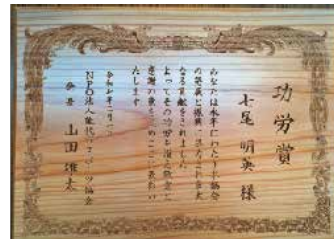 功労賞
七尾 明英 様
あなたは永年にわたり本協会
の発展と振興に尽力され多大
なる貢献をされました
よってその功労を讃え敬意と
感謝の意をこめここに表彰い
たします
令和七年
NPO法人能代 スポーツ協会
会長 山田 雄太